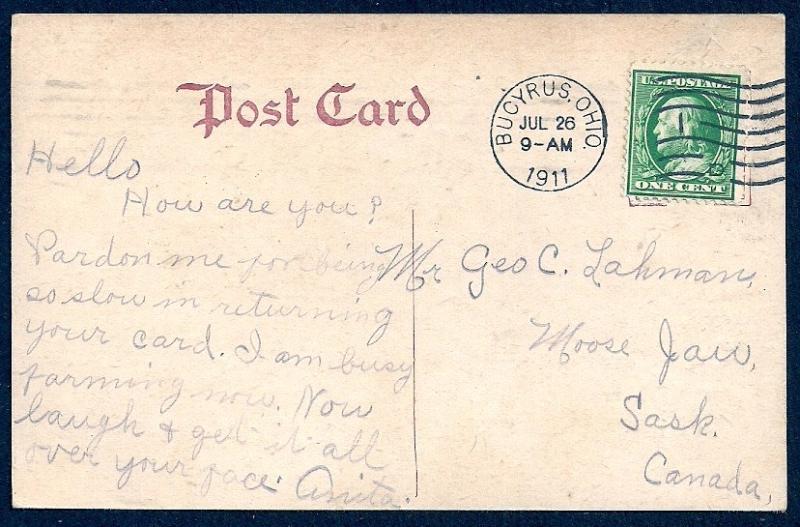 Post Card
BUCYRUS, OHIO.
JUL 26
9-AM
1911
U.S. POSTAGE
ONE CENT
Hello
How are you?
Pardon me for being
so slow in returning
your card. I am busy
farming now. Now
laugh & get it all
over your face. Anita.
Mr Geo C. Lahman,
Moose Jaw,
Sask.
Canada,